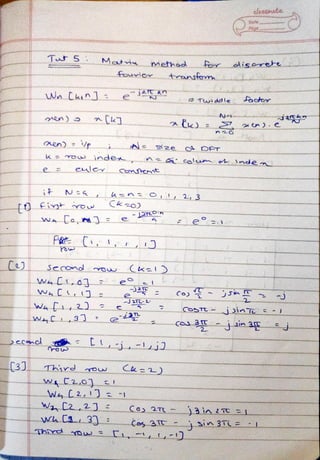 classmate
Date
Page
Tut 5 : Matrix method for discrete
fourier transform
Wn [k,n] = e^(-j2πkn/N) → Twiddle factor
x(n) → x[k] x(k) = Σ_{n=0}^{N-1} x(n). e^(-j2πkn/N)
x(n) = i/p ; N = size of DFT
k = row index, n = column index
e = euler constant
if N=4, k=n= 0, 1, 2, 3
[1] First row (k=0)
W4 [0, n] = e^(-j2π0·n/4) = e⁰ = 1
row = [1, 1, 1, 1]
[2] second row (k=1)
W4 [1,0] = e⁰ = 1
W4 [1,1] = e^(-j2π/4) = cos π/2 - j sin π/2 = -j
W4 [1,2] = = cos π - j sin π = -1
W4 [1,3] = = cos 3π/2 - j sin 3π/2 = j
second row = [1, -j, -1, j]
[3] Third row (k=2)
W4 [2,0] = 1
W4 [2,1] = -1
W4 [2,2] = cos 2π - j sin 2π = 1
W4 [2,3] = cos 3π - j sin 3π = -1
Third row = [1, -1, 1, -1]